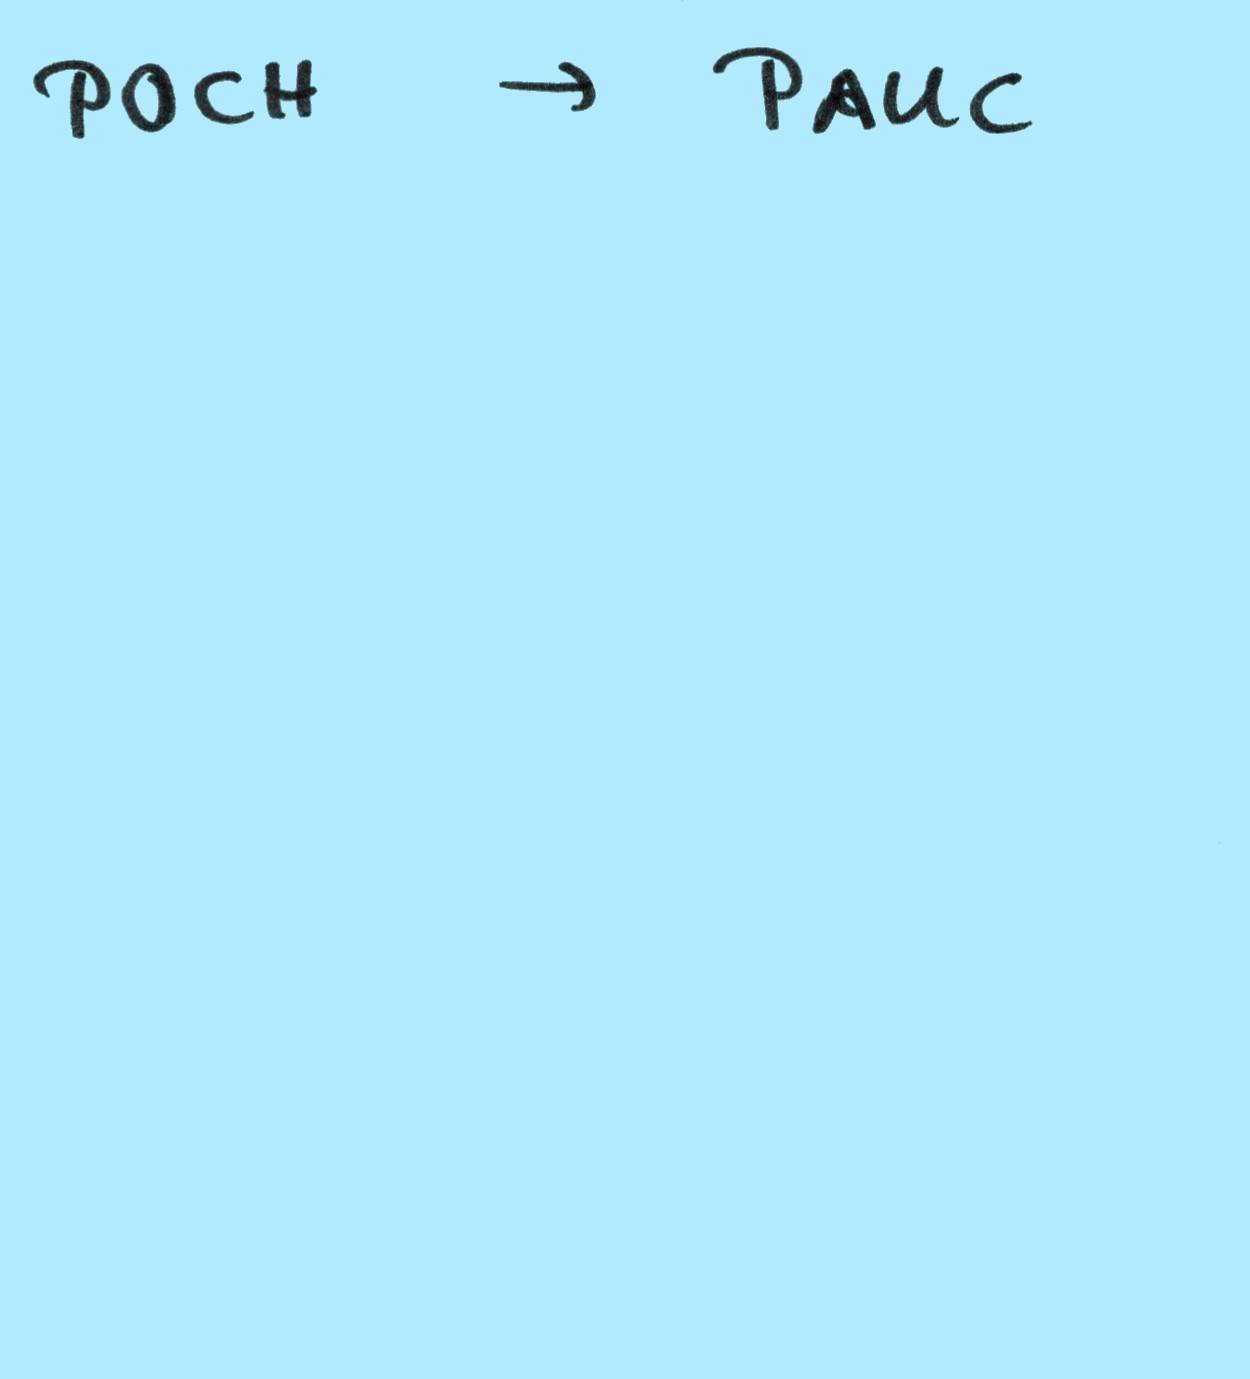 POCH → PAUC